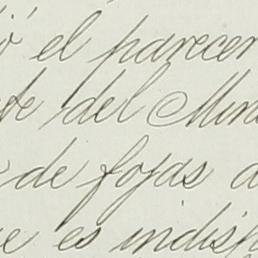 ó el parecer
del Min
de fojas
es indisp